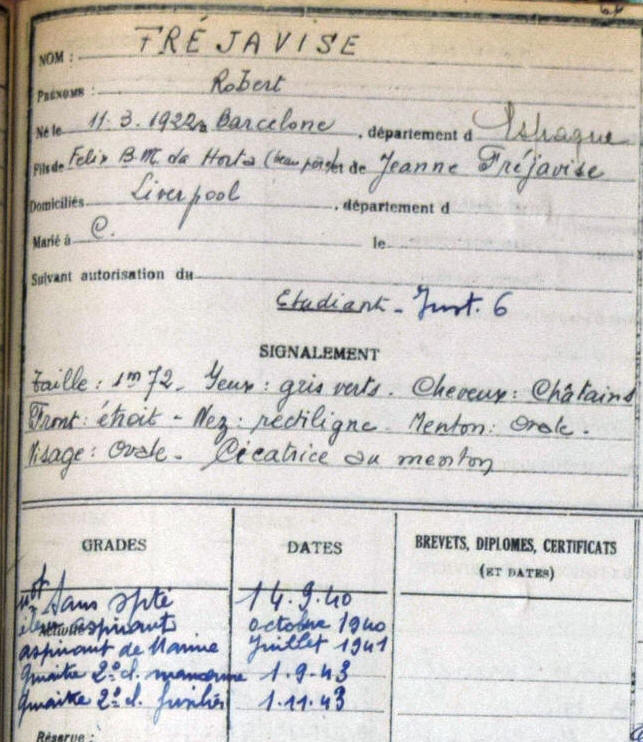 NOM : FRÉJAVISE
PRÉNOMS : Robert
Né le 11.3.1922 à Barcelone, département d Espagne
Fils de Felix B.M. da Horta (beau père) et de Jeanne Fréjavise
Domiciliés Liverpool, département d
Marié à C. le
Suivant autorisation du
Etudiant - Inst. 6
SIGNALEMENT
Taille : 1m72. Yeux : gris verts. Cheveux : Châtains
Front : étroit - Nez : rectiligne. Menton : Ovale.
Visage : Ovale. Cicatrice au menton
GRADES DATES BREVETS, DIPLOMES, CERTIFICATS
(ET DATES)
mot Sans spté 14.9.40
élève aspirant octobre 1940
aspirant de Marine Juillet 1941
Qmaitre 2e cl. 1.9.43
Qmaitre 2e cl. fusilier 1.11.43
Réserve :